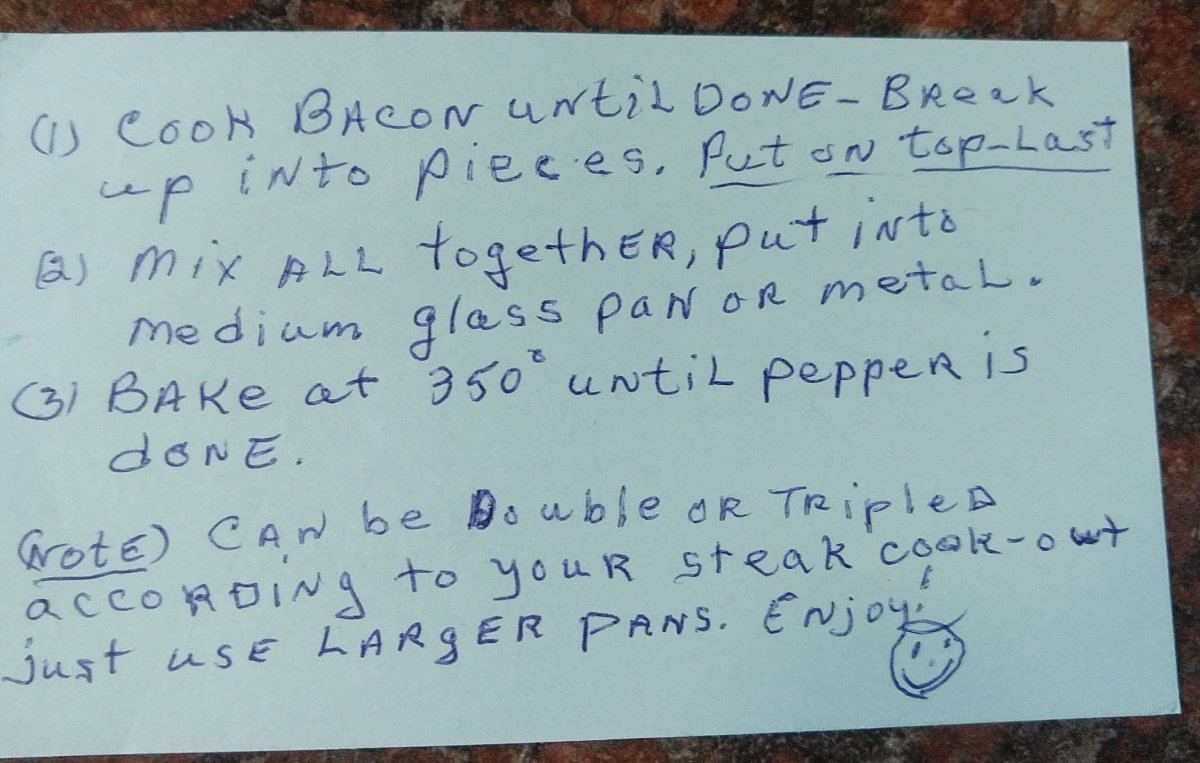 (1) Cook BACON until DONE - Break
up into pieces. Put on top-Last
(2) Mix ALL together, put into
medium glass pan or metal.
(3) BAKe at 350° until pepper is
doNE.
(NotE) CAN be Double or TripleD
accoRDiNg to youR steak cook-out
just usE LARgER PANS. ENjoy!